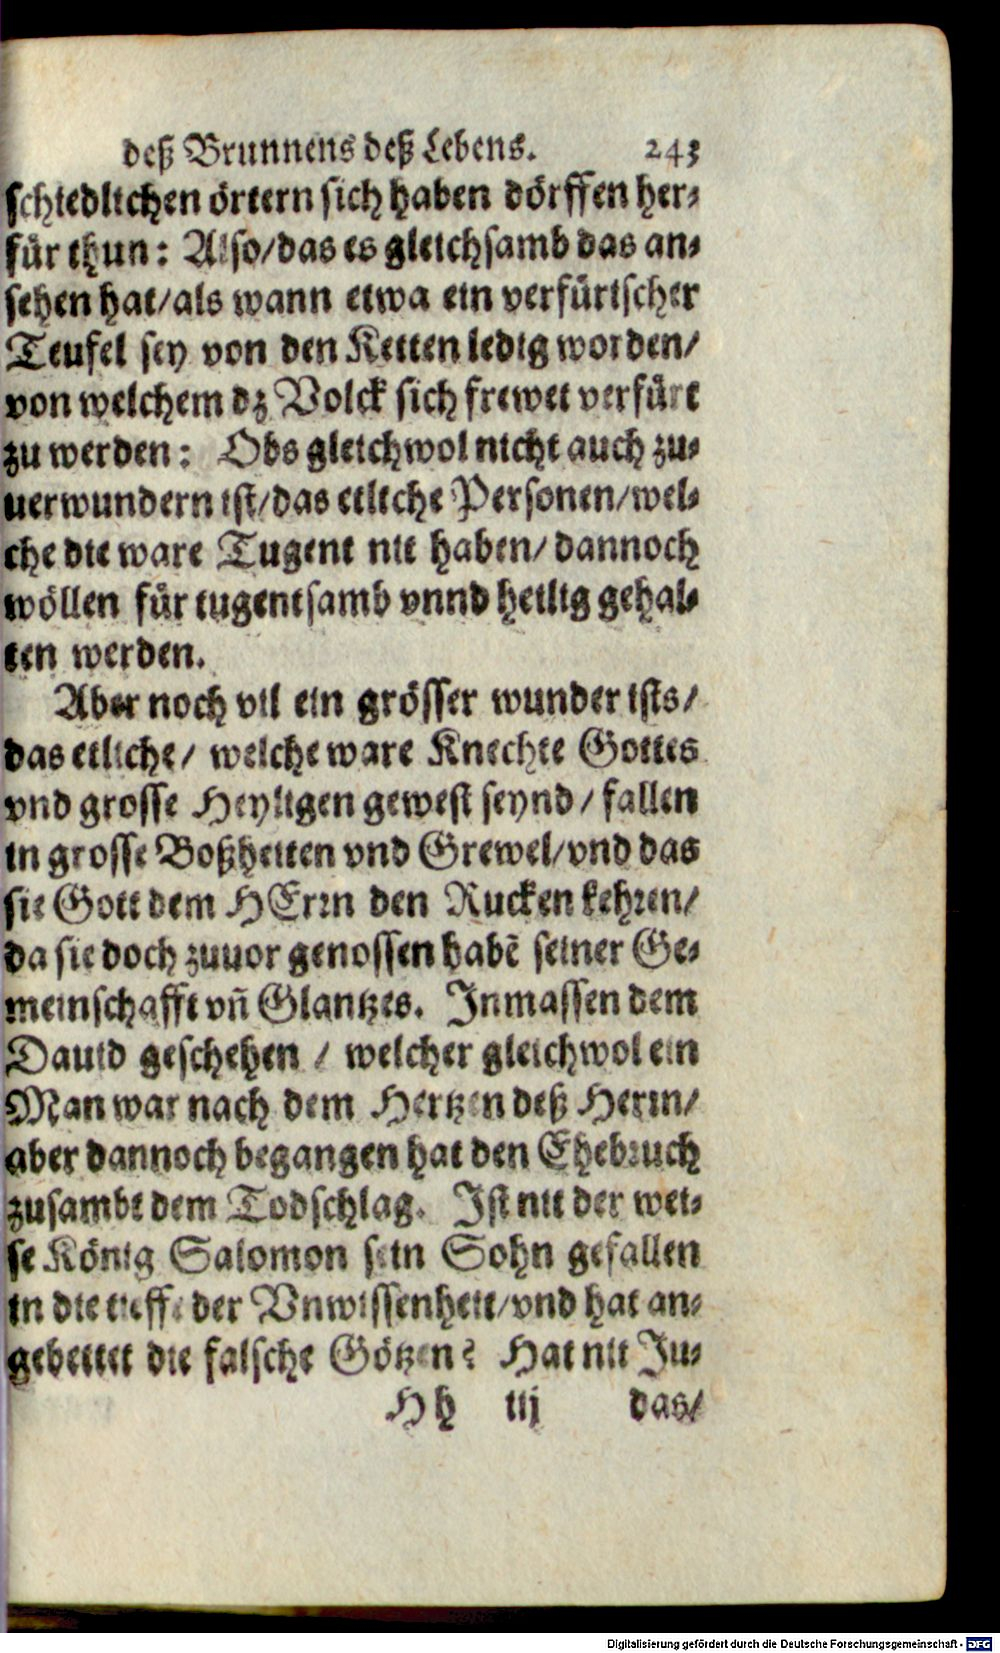 deß Brunnens deß Lebens. 243
schiedlichen örtern sich haben dörffen her-
für thun: Also/das es gleichsamb das an-
sehen hat/als wann etwa ein verfürischer
Teufel sey von den Ketten ledig worden/
von welchem dz Volck sich frewet verfürt
zu werden: Obs gleichwol nicht auch zu-
uerwundern ist/das etliche Personen/wel-
che die ware Tugent nit haben/dannoch
wöllen für tugentsamb vnnd heilig gehal-
ten werden.
Aber noch vil ein grösser wunder ists/
das etliche/ welche ware Knechte Gottes
vnd grosse Heyligen gewest seynd/fallen
in grosse Boßheiten vnd Grewel/vnd das
sie Gott dem HErrn den Rucken kehren/
da sie doch zuuor genossen habẽ seiner Ge-
meinschafft vñ Glantzes. Inmassen dem
Dauid geschehen / welcher gleichwol ein
Man war nach dem Hertzen deß Herrn/
aber dannoch begangen hat den Ehebruch
zusambt dem Todschlag. Ist nit der wei-
se König Salomon sein Sohn gefallen
in die tieffe der Vnwissenheit/vnd hat an-
gebettet die falsche Götzen? Hat nit Ju-
Hh iij das/
Digitalisierung gefördert durch die Deutsche Forschungsgemeinschaft - DFG